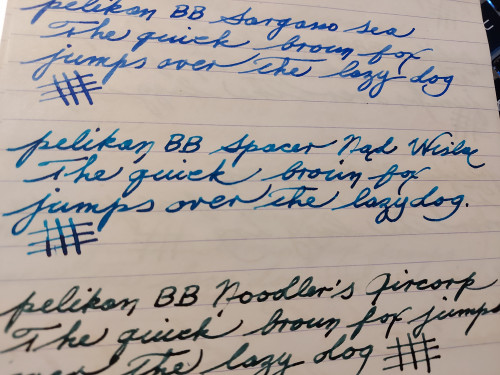 pelikan BB Sargasso Sea
The quick broun fox
jumps over the lazy dog
pelikan BB Spacer Nad Wisłą
The quick broun fox
jumps over the lazy dog.
pelikan BB Noodler's Aircorp
The quick broun fox jumps
over the lazy dog